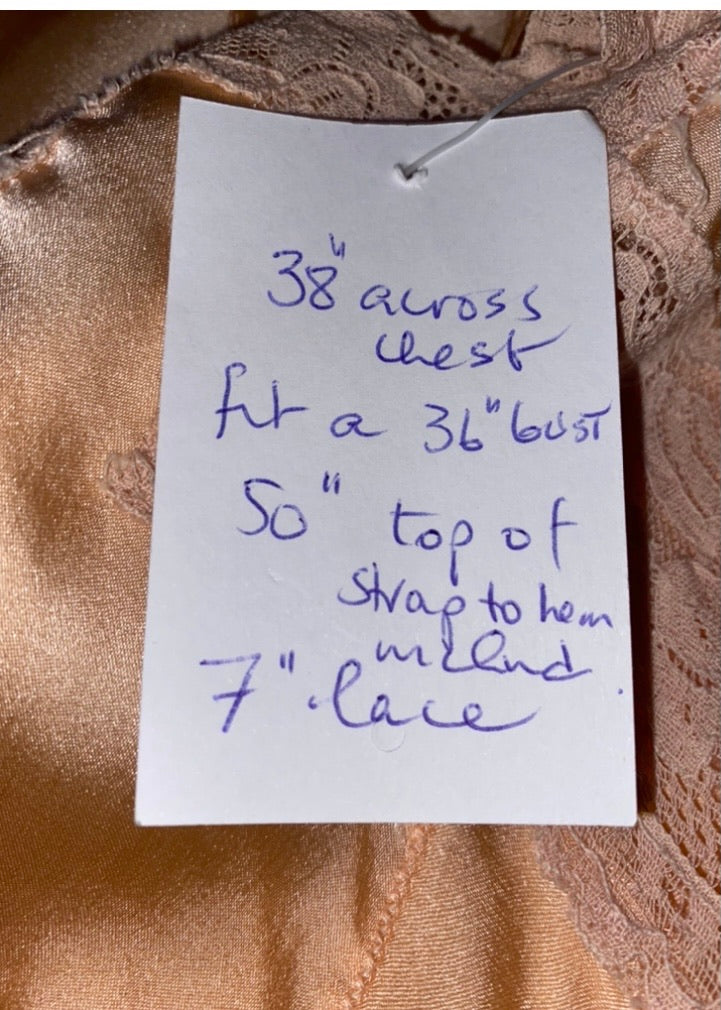 38" across
chest
fit a 36" bust
50" top of
strap to hem
includ.
7" lace